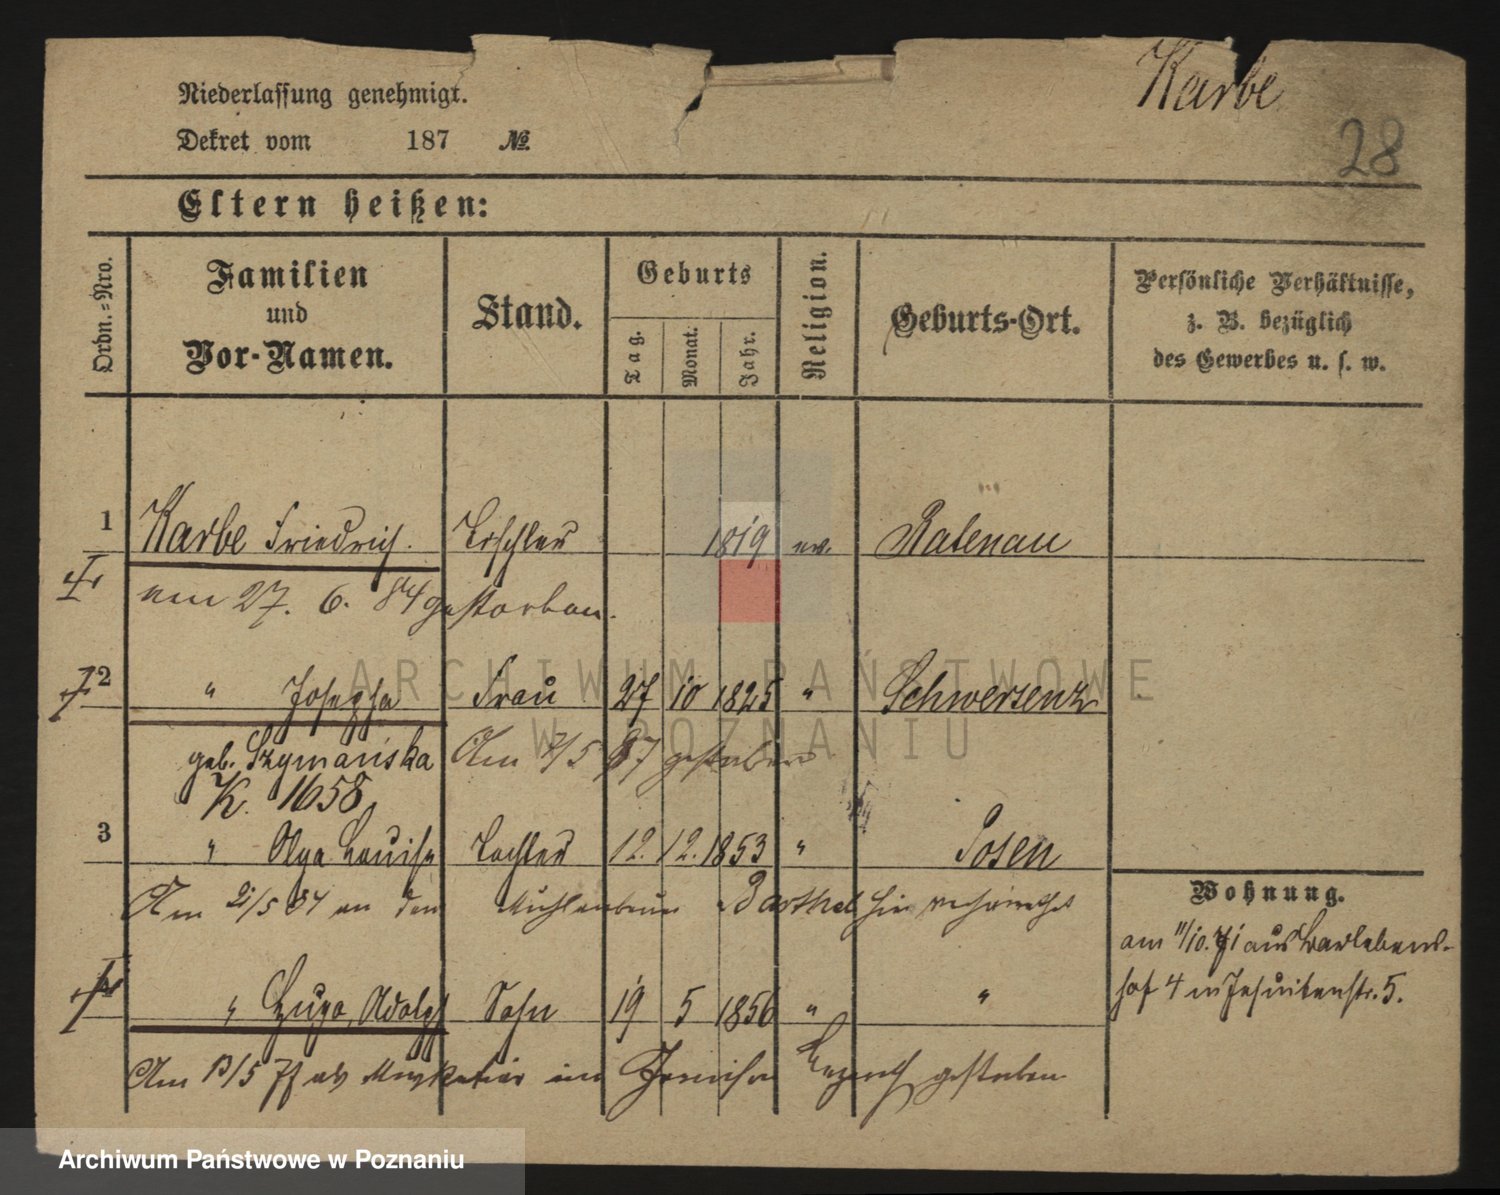 Niederlassung genehmigt.
Karbe
Dekret vom 187 №
28
Eltern heißen:
Ordn.=Nro.
Familien
und
Vor-Namen.
Stand.
Geburts
Tag.
Monat.
Jahr.
Religion.
Geburts-Ort.
Persönliche Verhältnisse,
z. B. bezüglich
des Gewerbes u. s. w.
1 Karbe Friedrich. 1819 ev. Ratenau
am 27. 6. 84 gestorben.
2 " Josepha Frau 27 10 1825 " Schwersenz
geb. Szymańska Am 7/5 87 gestorben
K. 1658
3 " Olga Louise Tochter 12. 12. 1853 " Posen
Am 21/5 84 an den Barthel hier verheirathet
Wohnung.
am 11/10. 71 aus Barlebens-
hof 4 n Jesuitenstr. 5.
" Hugo, Adolph Sohn 19 5 1856 " "
Am 13/5 als Musketier im Lazareth gestorben
ARCHIWUM PAŃSTWOWE
W POZNANIU
Archiwum Państwowe w Poznaniu